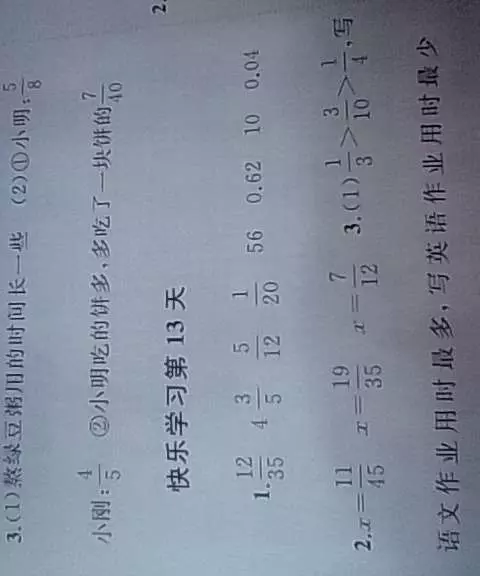 3.(1)熬绿豆粥用的时间长一些 (2)①小明:5/8
小刚:4/5 ②小明吃的饼多,多吃了一块饼的7/40
快乐学习第 13 天
1. 12/35 4 3/5 5/12 1/20 56 0.62 10 0.04
2. x=11/45 x=19/35 x=7/12 3.(1)1/3>3/10>1/4,写
语文作业用时最多,写英语作业用时最少
2.